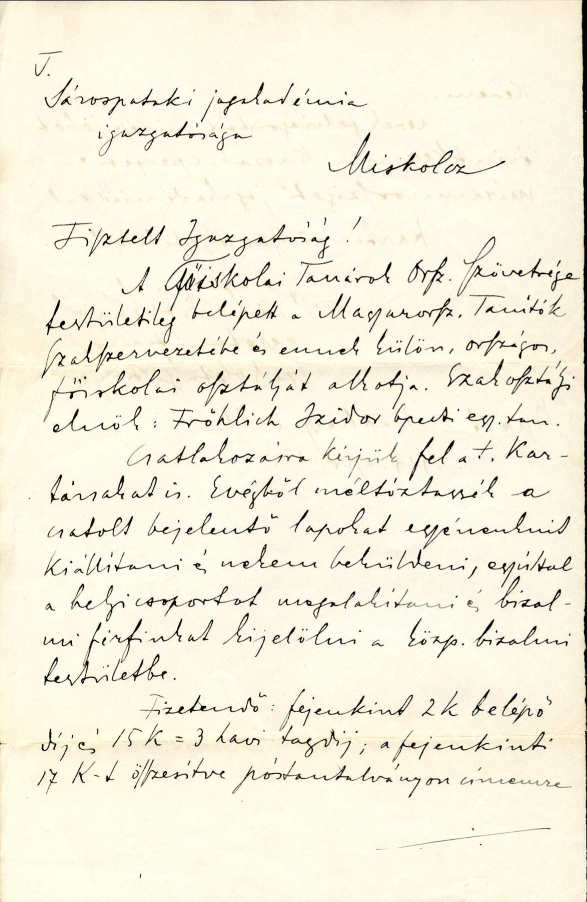 I.
Sárospataki jogakadémia
igazgatósága
Miskolcz
Tisztelt Igazgatóság!
A Főiskolai Tanárok Orsz. Szövetsége
testületileg belépett a Magyarorsz. Tanítók
Szakszervezetébe és ennek külön, országos,
főiskolai osztályát alkotja. Szakosztályi
elnök: Fröhlich Izidor bpesti egy. tan.
Csatlakozásra kérjük fel a t. Kar-
társakat is. Evégből méltóztassék a
csatolt bejelentő lapokat egyénenkint
kiállítani és nekem beküldeni, egyúttal
a helyi csoportot megalakítani és bizal-
mi férfiakat kijelölni a közp. bizalmi
testületbe.
Fizetendő: fejenkint 2 K belépő
díj és 15 K = 3 havi tagdíj; a fejenkinti
17 K-t összesítve póstautalványon címemre